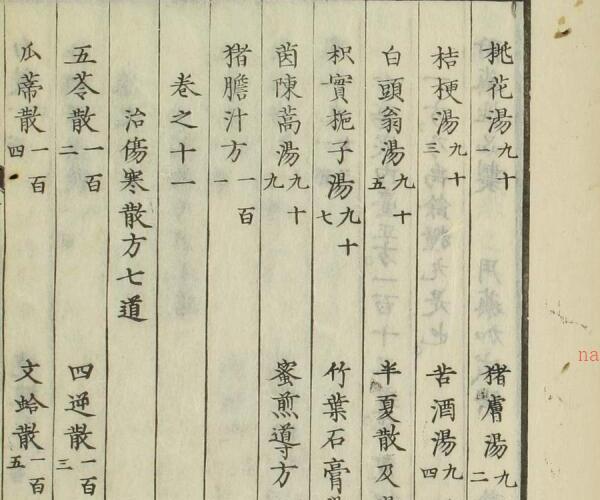 桃花湯九十一 猪膚湯九二
桔梗湯九十三 苦酒湯九四
白頭翁湯九十五 半夏散及
枳實梔子湯九十七 竹葉石膏
茵陳蒿湯九十九 蜜煎導方
猪膽汁方一百一
卷之十一
治傷寒散方七道
五苓散一百二 四逆散一百三
瓜蔕散一百四 文蛤散一百五
na